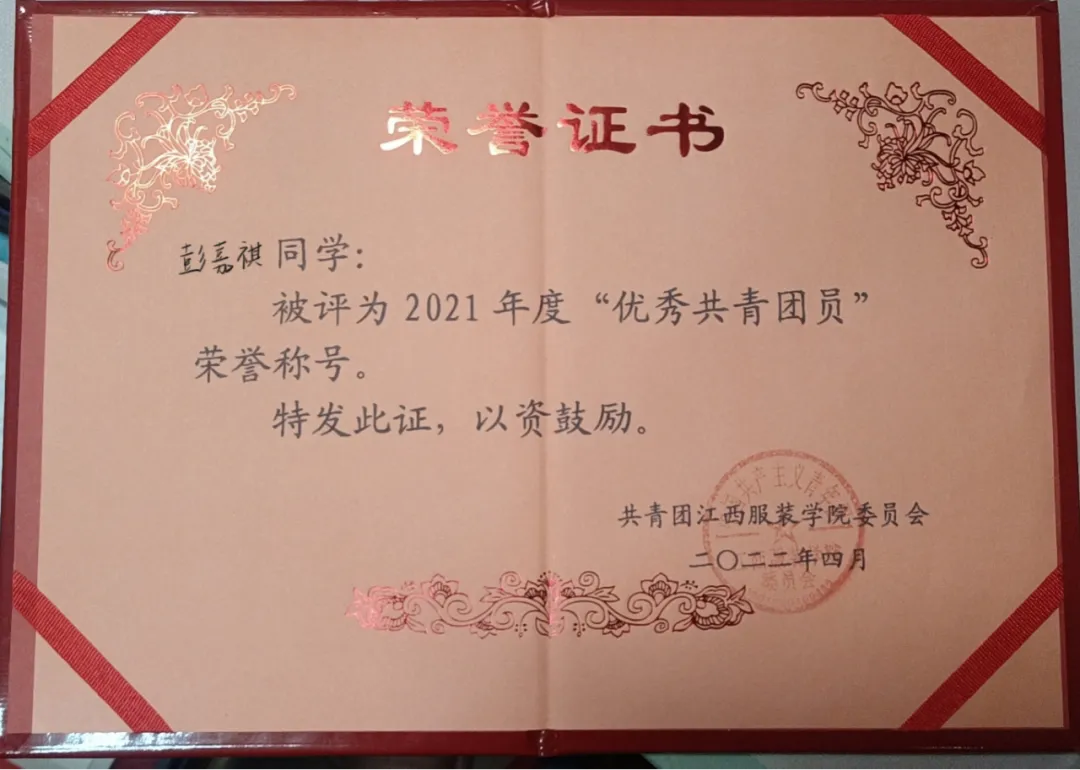 荣誉证书
彭嘉祺同学：
被评为2021年度“优秀共青团员”
荣誉称号。
特发此证，以资鼓励。
共青团江西服装学院委员会
二〇二二年四月
共产主义青年
委员会